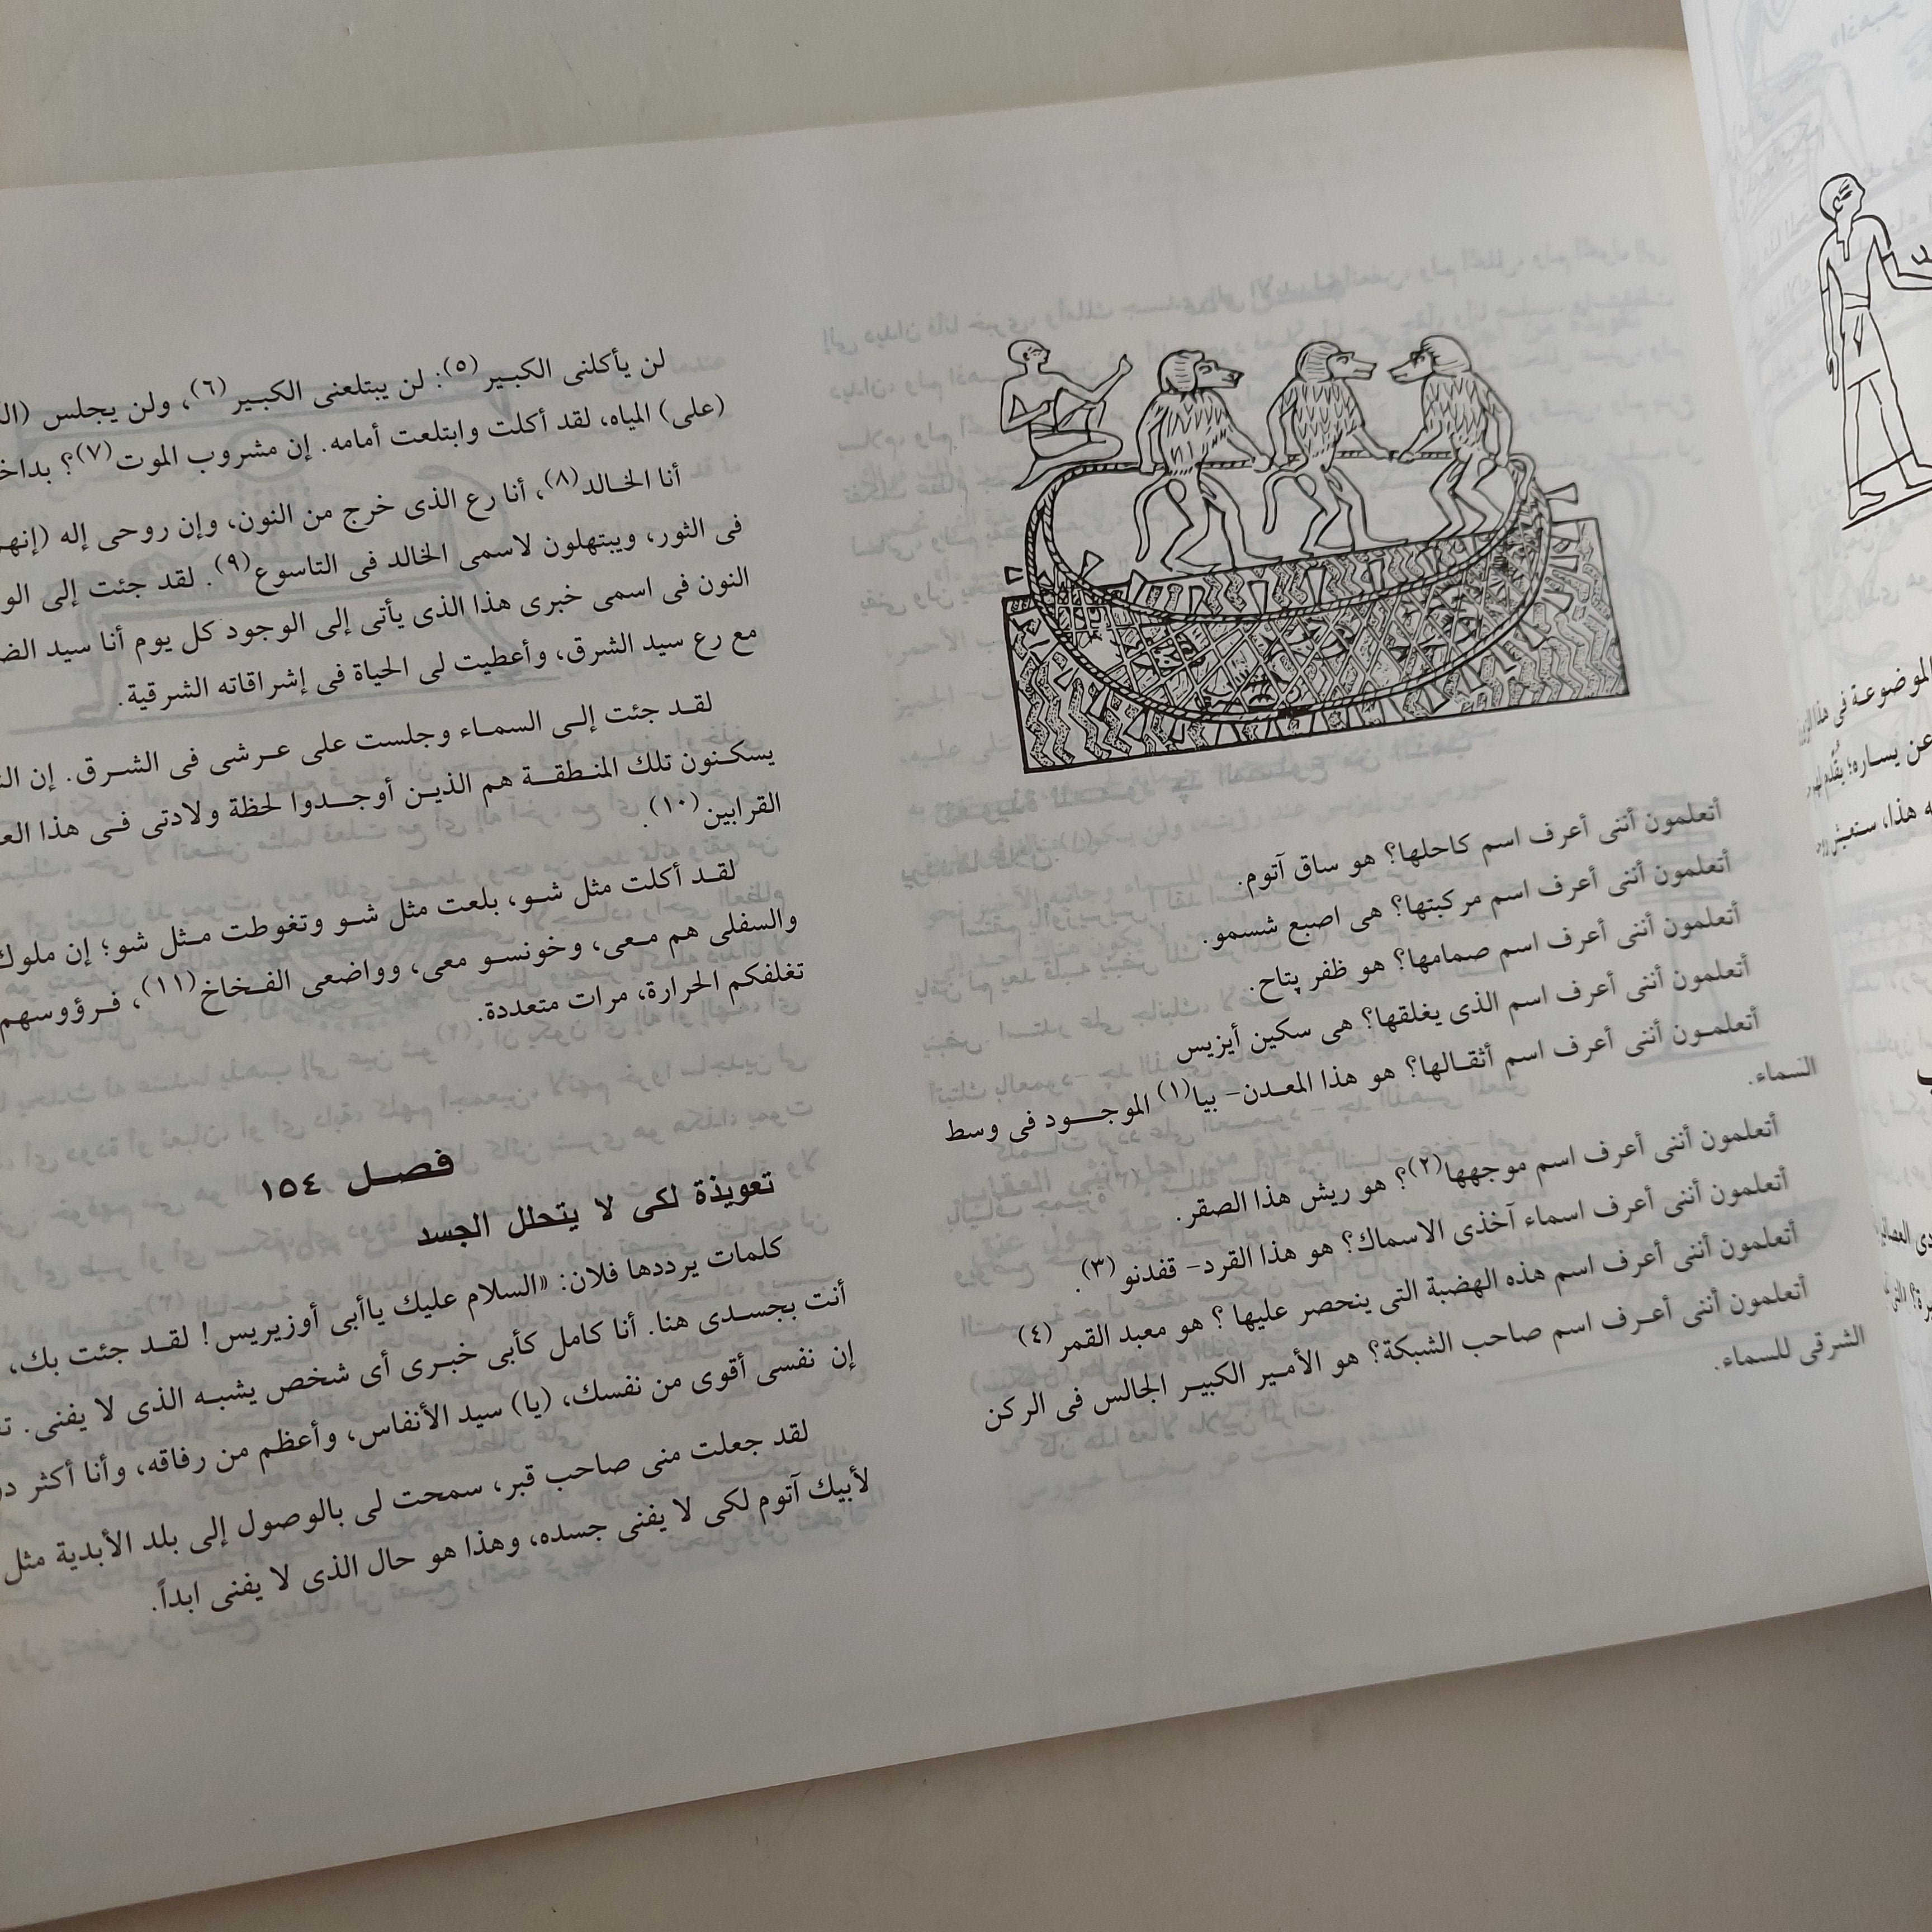 أتعلمون أننى أعرف اسم كاحلها؟ هو ساق آتوم.
أتعلمون أننى أعرف اسم مركبتها؟ هى اصبع شسمو.
أتعلمون أننى أعرف اسم صمامها؟ هو ظفر پتاح.
أتعلمون أننى أعرف اسم الذى يغلقها؟ هى سكين أيزيس
أتعلمون أننى أعرف اسم أثقالها؟ هو هذا المعدن- بيا(١) الموجود فى وسط
السماء.
أتعلمون أننى أعرف اسم موجهها(٢)؟ هو ريش هذا الصقر.
أتعلمون أننى أعرف اسماء آخذى الاسماك؟ هو هذا القرد- قفدنو (٣).
أتعلمون أننى أعرف اسم هذه الهضبة التى ينحصر عليها ؟ هو معبد القمر (٤)
أتعلمون أننى أعرف اسم صاحب الشبكة؟ هو الأمير الكبير الجالس فى الركن
الشرقى للسماء.
لن يأكلنى الكبير(٥): لن يبتلعنى الكبير(٦)، ولن يجلس
(على) المياه، لقد أكلت وابتلعت أمامه. إن مشروب الموت(٧)؟
أنا الخالد(٨)، أنا رع الذى خرج من النون، وإن روحى إله
فى الثور، ويبتهلون لاسمى الخالد فى التاسوع(٩). لقد جئت إلى
النون فى اسمى خبرى هذا الذى يأتى إلى الوجود كل يوم أنا سيد
مع رع سيد الشرق، وأعطيت لى الحياة فى إشراقاته الشرقية.
لقد جئت إلى السماء وجلست على عرشى فى الشرق. إن
يسكنون تلك المنطقة هم الذين أوجدوا لحظة ولادتى فى هذا
القرابين(١٠).
لقد أكلت مثل شو، بلعت مثل شو وتغوطت مثل شو؛ إن ملوك
والسفلى هم معى، وخونسو معى، وواضعى الفخاخ(١١)، فرؤوسهم
تغلفكم الحرارة، مرات متعددة.
فصل ١٥٤
تعويذة لكى لا يتحلل الجسد
كلمات يرددها فلان: «السلام عليك ياأبى أوزيريس! لقد جئت بك،
أنت بجسدى هنا. أنا كامل كأبى خبرى أى شخص يشبه الذى لا يفنى.
إن نفسى أقوى من نفسك، (يا) سيد الأنفاس، وأعظم من رفاقه، وأنا أكثر
لقد جعلت منى صاحب قبر، سمحت لى بالوصول إلى بلد الأبدية مثل
لأبيك آتوم لكى لا يفنى جسده، وهذا هو حال الذى لا يفنى ابداً.